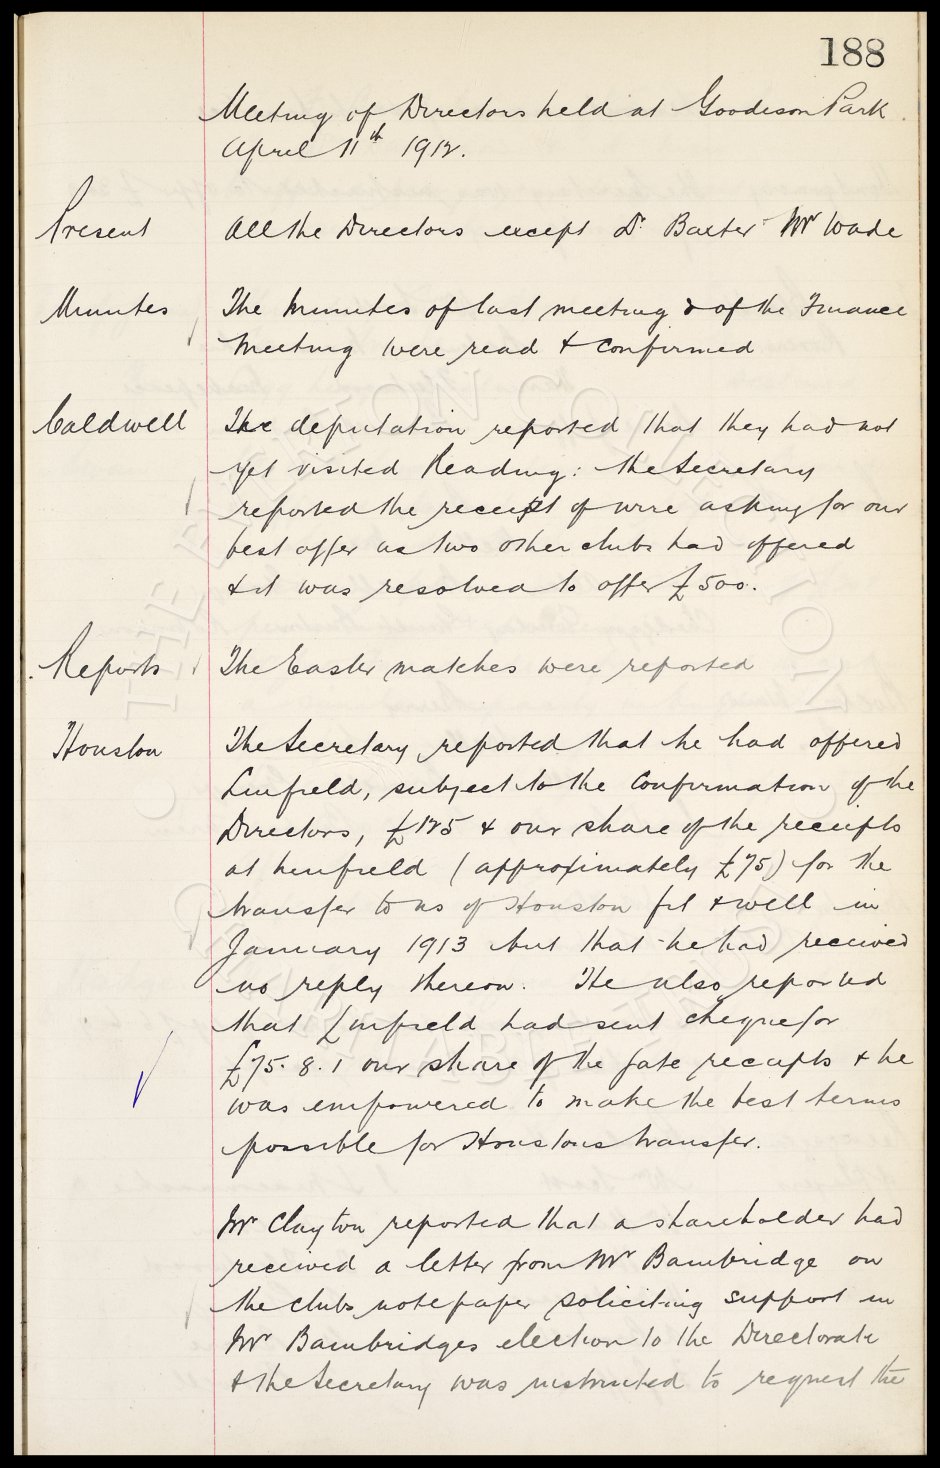 188
Meeting of Directors held at Goodison Park.
April 11th 1912.
Present All the Directors except Dr. Baxter Mr Wade
Minutes The Minutes of last meeting & of the Finance
Meeting were read & confirmed
Caldwell The deputation reported that they had not
yet visited Reading: the Secretary
reported the receipt of wire asking for our
best offer as two other clubs had offered
& it was resolved to offer £500.
Reports The Easter matches were reported
Houston The Secretary reported that he had offered
Linfield, subject to the confirmation of the
Directors, £125 & our share of the receipts
at Linfield (approximately £75) for the
transfer to us of Houston fit & well in
January 1913 but that he had received
no reply thereon. He also reported
that Linfield had sent cheque for
£75. 8. 1 our share of the gate receipts & he
was empowered to make the best terms
possible for Houstons transfer.
Mr Clayton reported that a shareholder had
received a letter from Mr Bambridge on
the clubs notepaper soliciting support in
Mr Bambridges election to the Directorate
& the Secretary was instructed to request the